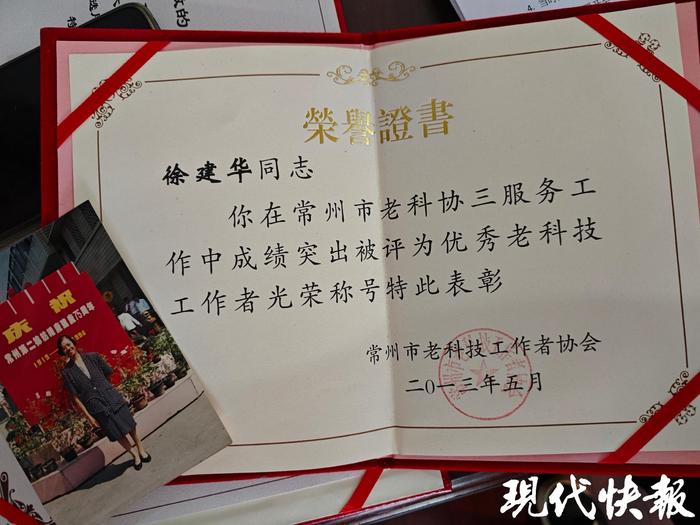 榮譽證書
徐建华同志
你在常州市老科协三服务工
作中成绩突出被评为优秀老科技
工作者光荣称号特此表彰
常州市老科技工作者协会
二〇一三年五月
庆祝
75周年
1919
1994
現代快報